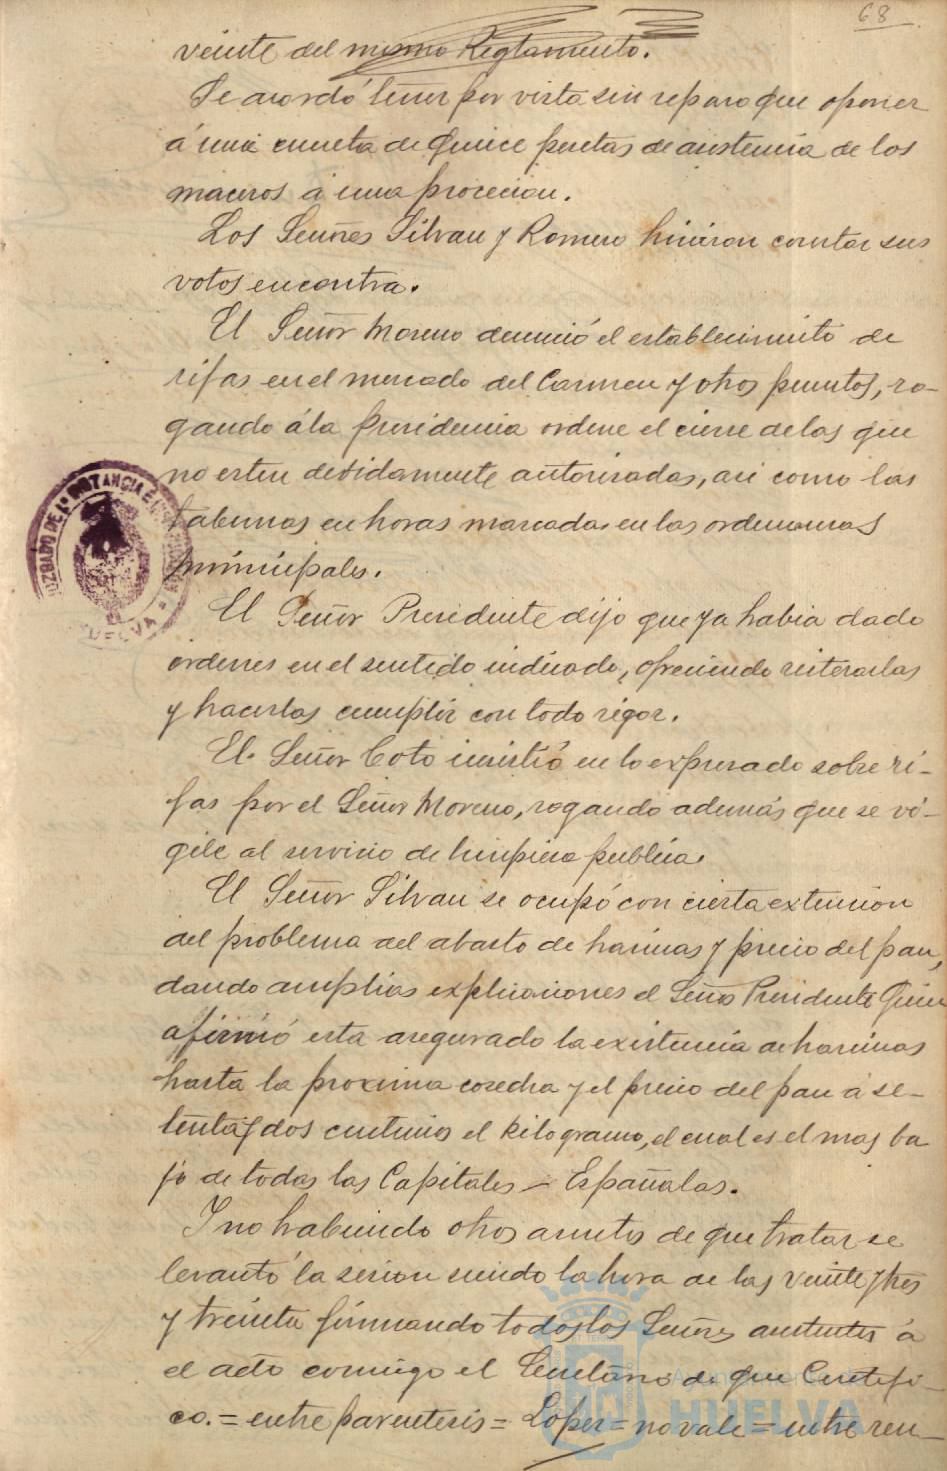 68
veinte del mismo Reglamento.
Se acordó tener por vista sin reparo que oponer
á una cuenta de Quince pesetas de asistencia de los
maceros á una procecion.
Los Señores Silvan y Romero hicieron constar sus
votos en contra.
El Señor Moreno denunció el establecimiento de
rifas en el mercado del Carmen y otros puntos, ro-
gando á la Presidencia ordene el cierre de las que
no esten debidamente autorisadas, asi como las
tabernas en horas marcadas en las ordenanzas
municipales.
El Señor Presidente dijo que ya habia dado
ordenes en el sentido indicado, ofreciendo reiterarlas
y hacerlas cumplir con todo rigor.
El Señor Coto insistió en lo expresado sobre ri-
fas por el Señor Moreno, rogando además que se vi-
gile al servicio de limpieza publica.
El Señor Silvan se ocupó con cierta extencion
del problema del abasto de harinas y precio del pan,
dando amplias explicaciones el Señor Presidente Quien
afirmó esta asegurado la existencia de harinas
hasta la proxima cosecha y el precio del pan á se-
tenta y dos centimos el kilogramo, el cual es el mas ba
jo de todas las Capitales - Españolas.
Y no habiendo otros asuntos de que tratar se
levantó la sesion siendo la hora de las veinte y tres
y treinta firmando todos los Señores asistentes á
el acto conmigo el Secretario de que Certifi-
co. = entre parentesis = Loper = no vale = entre ren-
JUZGADO DE 1ª INSTANCIA É
HUELVA
Ayuntamiento de
HUELVA